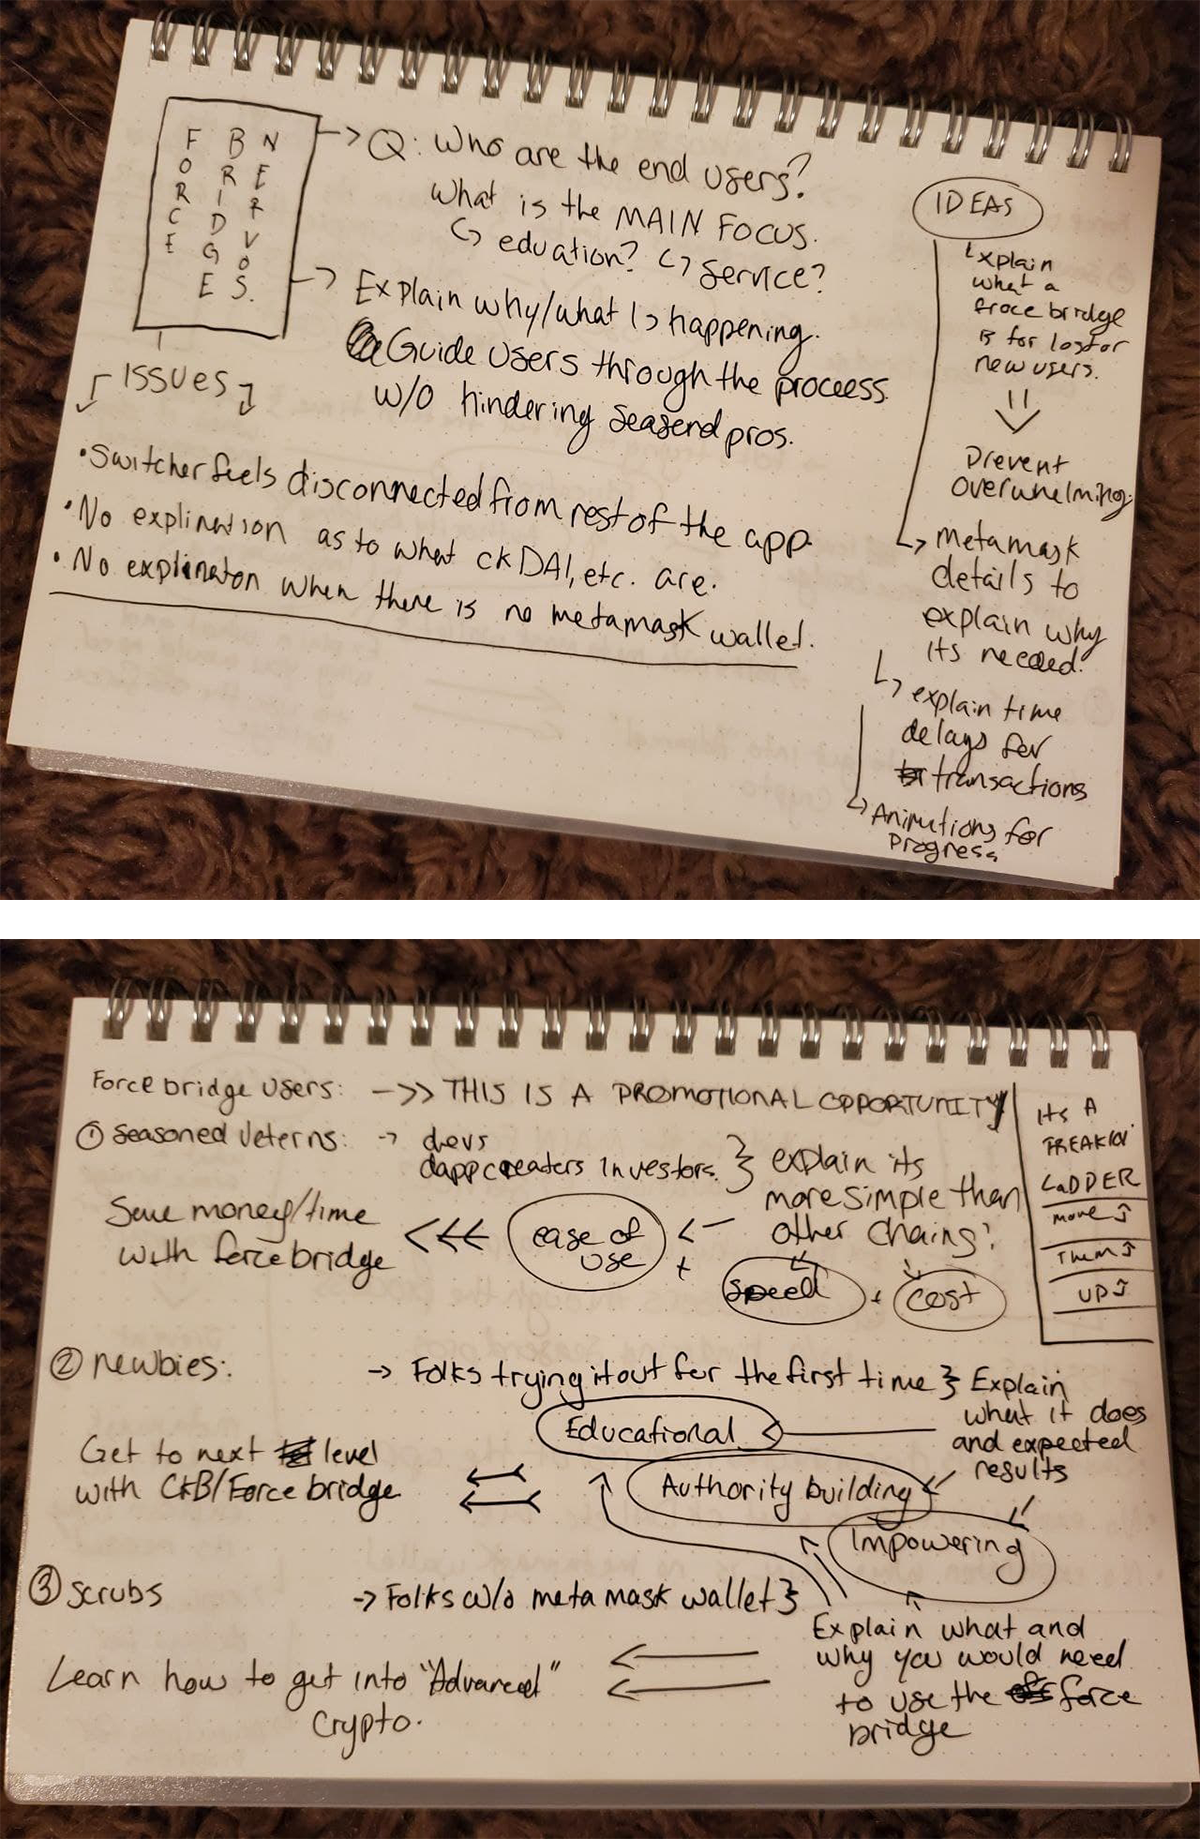 FORCE BRIDGE NERVOS.
Q: Who are the end users?
What is the MAIN FOCUS.
eduation? service?
Explain why/what is happening.
Guide users through the proceess
w/o hindering seasend pros.
ISSUES
• Switcher feels disconnected from rest of the app.
• No explination as to what ckDAI, etc. are.
• No explination when there is no metamask wallet.
IDEAS
Explain
what a
froce bridge
is for
new users.
Prevent
overwhelming.
metamask
details to
explain why
its needed.
explain time
delays for
transactions
Animations for
Progress
Force bridge users: ->> THIS IS A PROMOTIONAL OPPORTUNITY
① Seasoned Veterns: -> devs
dapp creaters investors. } explain its
more simple than
other chains:
Save money/time
with force bridge
<<< ease of
use
+ speed + cost
Its A
FREAKIN'
LaDDER
move
Them
UP
② Newbies: -> Folks trying it out for the first time } Explain
what it does
and expected
results
Educational
Authority building
Impowering
Get to next level
with CKB/Force bridge
③ Scrubs -> Folks w/o meta mask wallet }
Explain what and
why you would need
to use the force
bridge
Learn how to get into "Advanced"
Crypto.